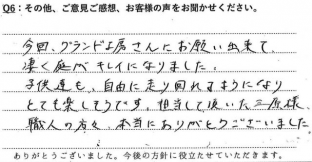 Q6：その他、ご意見ご感想、お客様の声をお聞かせください。
今回、グランド工房さんにお願い出来て
凄く庭がキレイになりました。
子供達も、自由に走り回れるようになり
とても楽しそうです。担当して頂いた三原様、
職人の方々、本当にありがとうございました
ありがとうございました。今後の方針に役立たせていただきます。